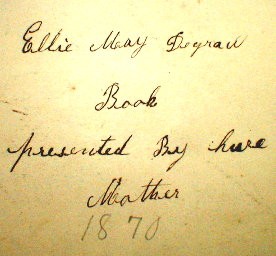 Ellie May Degraw
Book
presented By hure
Mother
1870